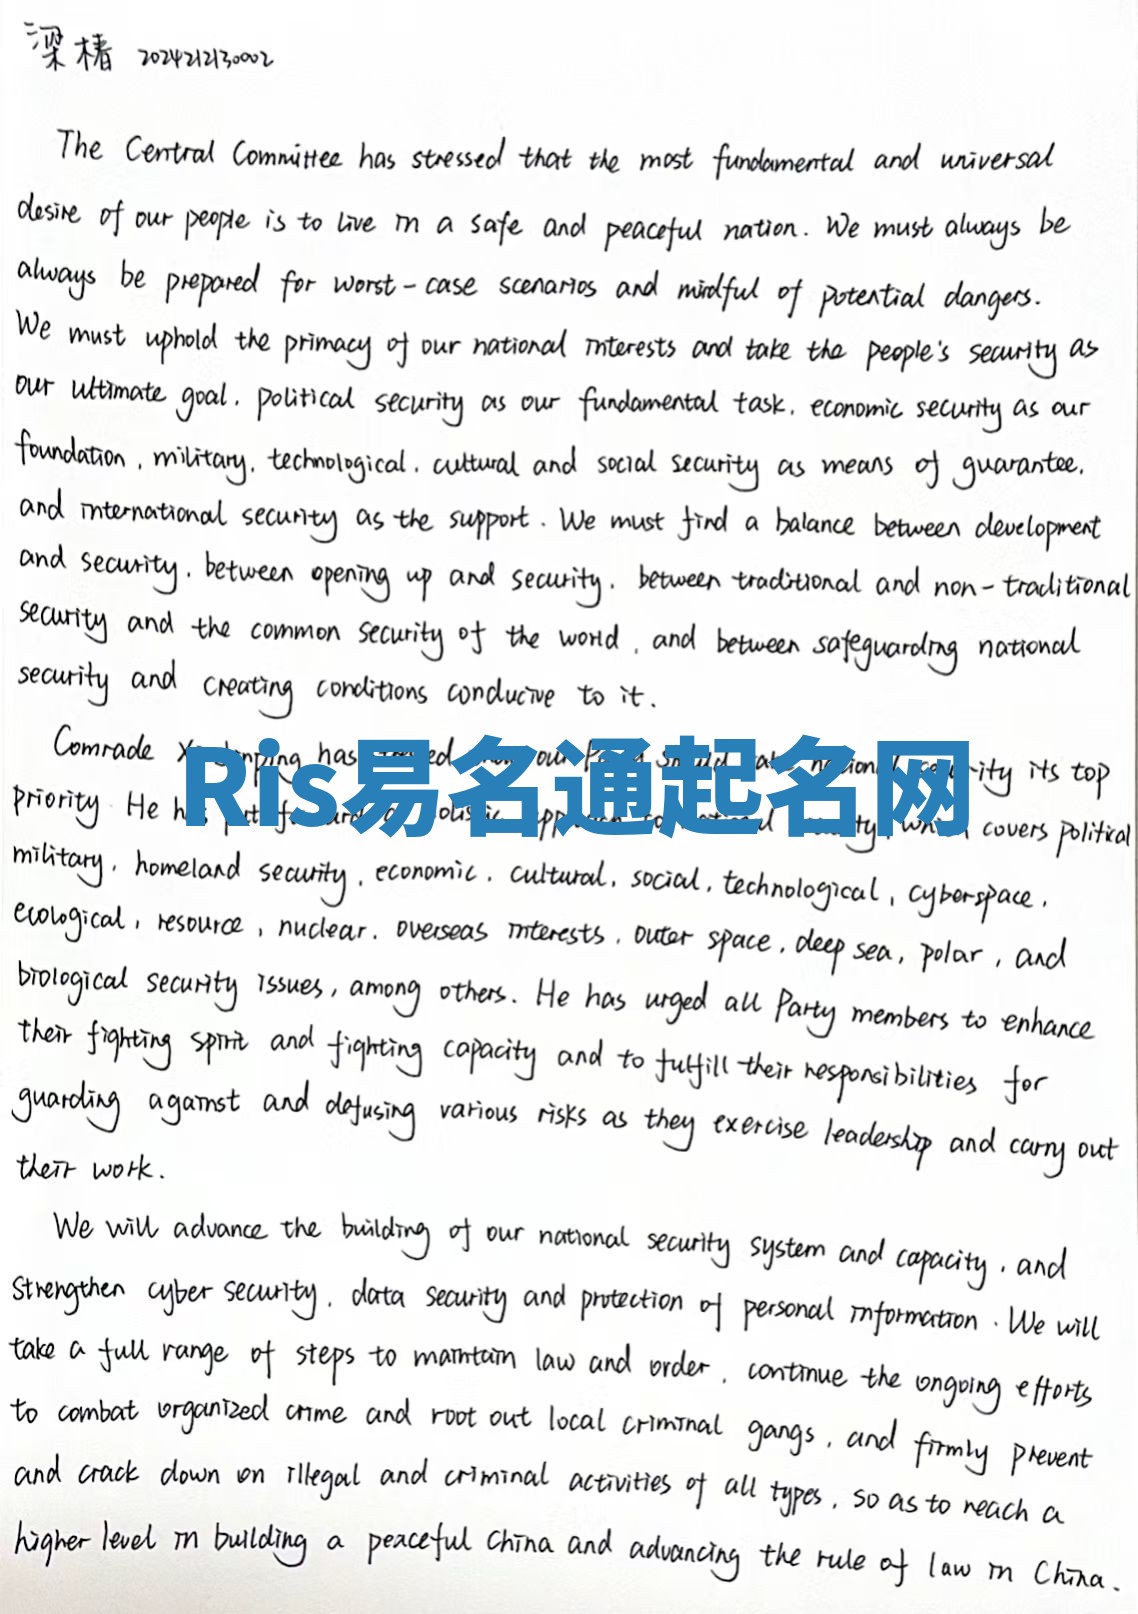 梁椿 2024212130002
The Central Committee has stressed that the most fundamental and universal
desire of our people is to live in a safe and peaceful nation. We must always be
always be prepared for worst-case scenarios and mindful of potential dangers.
We must uphold the primacy of our national interests and take the people's security as
our ultimate goal, political security as our fundamental task, economic security as our
foundation, military, technological, cultural and social security as means of guarantee,
and international security as the support. We must find a balance between development
and security, between opening up and security, between traditional and non-traditional
security and the common security of the world, and between safeguarding national
security and creating conditions conducive to it.
Comrade has our its top
Ris易名通起名网
priority He covers political
military, homeland security, economic, cultural, social, technological, cyberspace,
ecological, resource, nuclear, overseas interests, outer space, deep sea, polar, and
biological security issues, among others. He has urged all Party members to enhance
their fighting spirit and fighting capacity and to fulfill their responsibilities for
guarding against and defusing various risks as they exercise leadership and carry out
their work.
We will advance the building of our national security system and capacity, and
strengthen cyber security, data security and protection of personal information. We will
take a full range of steps to maintain law and order, continue the ongoing efforts
to combat organized crime and root out local criminal gangs, and firmly prevent
and crack down on illegal and criminal activities of all types, so as to reach a
higher level in building a peaceful China and advancing the rule of law in China.